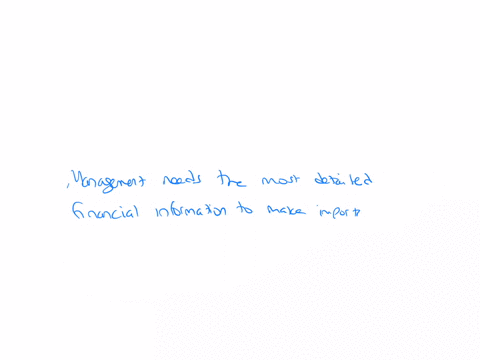 Management needs the most detailed
financial information to make import